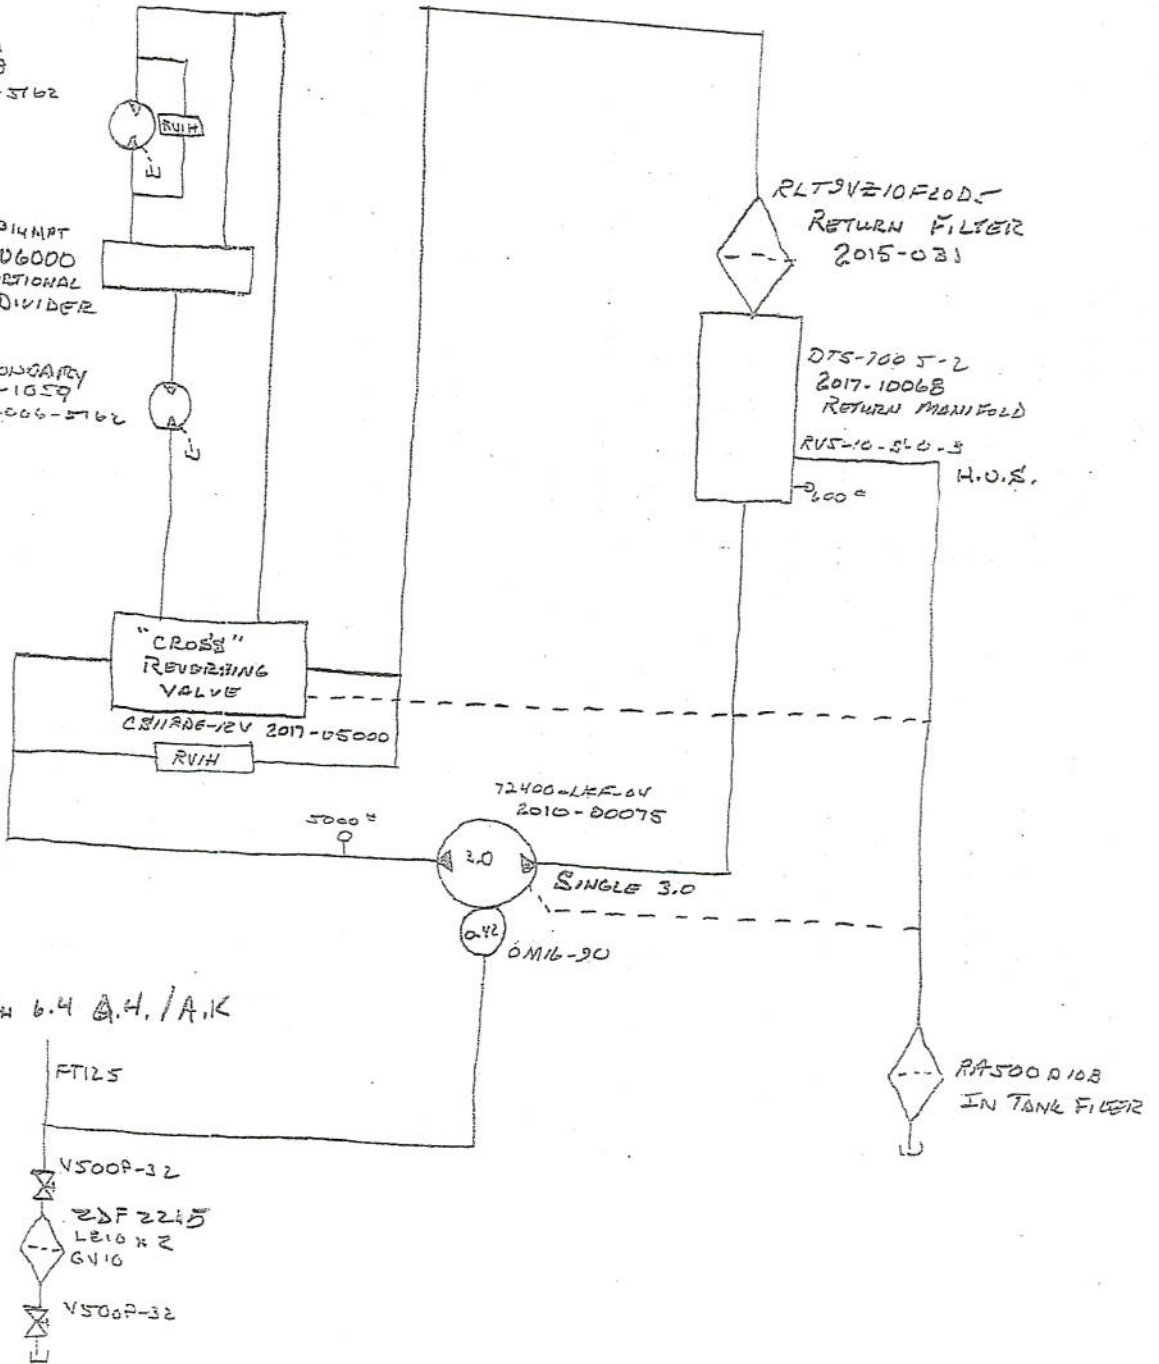 -5762
RV1H
3/4 NPT
06000
RTIONAL
DIVIDER
ONDARY
-1059
006-5762
RLT9VZ10F20D5
RETURN FILTER
2015-031
DTS-700 5-2
2017-10068
RETURN MANIFOLD
RV5-10-S-0-3
H.O.S.
600#
"CROSS"
REVERSING
VALVE
2017-05000
RV1H
72400-LKF-04
2010-00075
5000#
3.0
SINGLE 3.0
0.42
OM16-90
6.4 A.H./A.K
FT125
V500P-32
ZDF 2215
LE10 x 2
GV10
V500P-32
RA500D10B
IN TANK FILTER